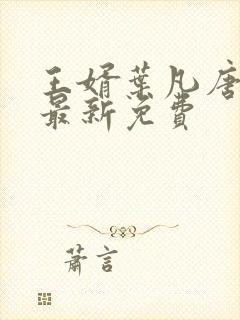 王婿葉凡唐
最新免費
蕭言